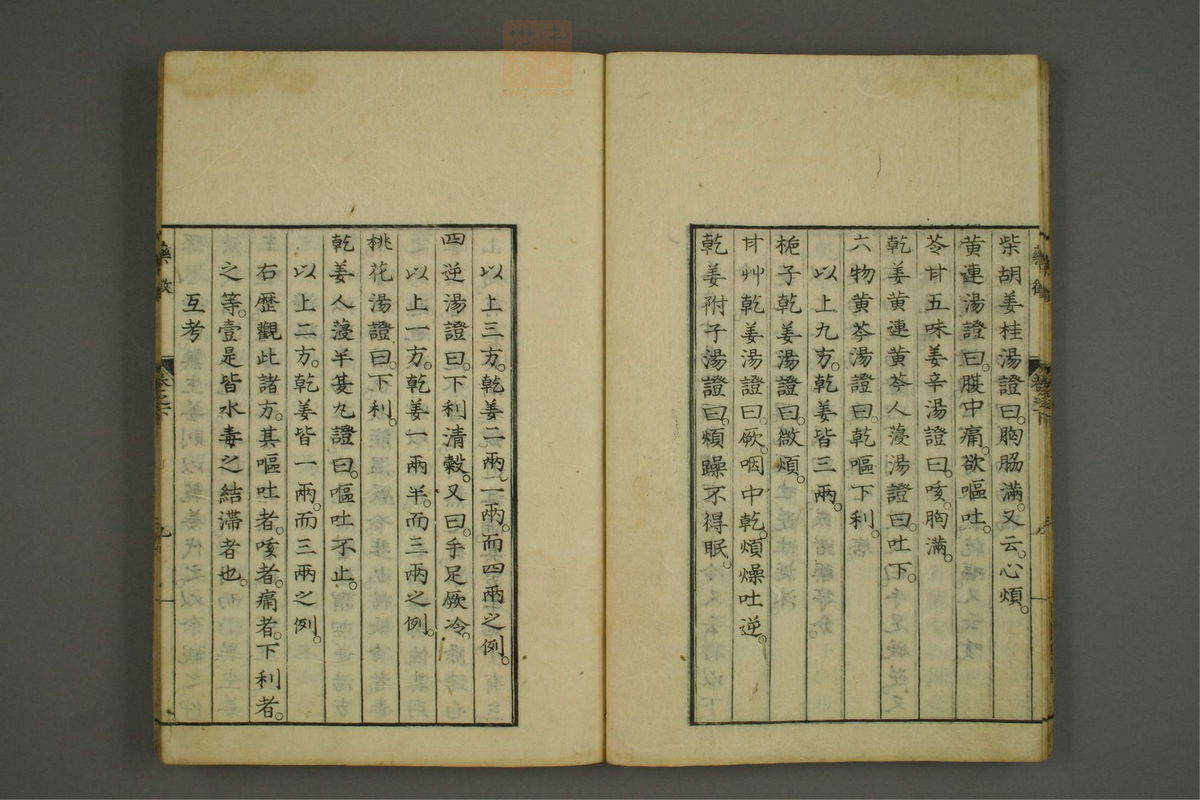 柴胡姜桂湯證曰。胸脇滿。又云。心煩。
黄連湯證曰。腹中痛。欲嘔吐。
苓甘五味姜辛湯證曰。咳。胸滿。
乾姜黄連黄芩人薓湯證曰。吐下。
六物黄芩湯證曰。乾嘔下利。
以上九方。乾姜皆三兩。
梔子乾姜湯證曰。微煩。
甘艸乾姜湯證曰。厥。咽中乾。煩燥吐逆。
乾姜附子湯證曰。煩躁不得眠。
以上三方。乾姜二兩。一兩。而四兩之例。
四逆湯證曰。下利清穀。又曰。手足厥冷。
以上一方。乾姜一兩半。而三兩之例。
桃花湯證曰。下利。
乾姜人薓半夏丸證曰。嘔吐不止。
以上二方。乾姜皆一兩。而三兩之例。
右歷觀此諸方。其嘔吐者。咳者。痛者。下利者。
之等。壹是皆水毒之結滯者也。
互考
藥徵